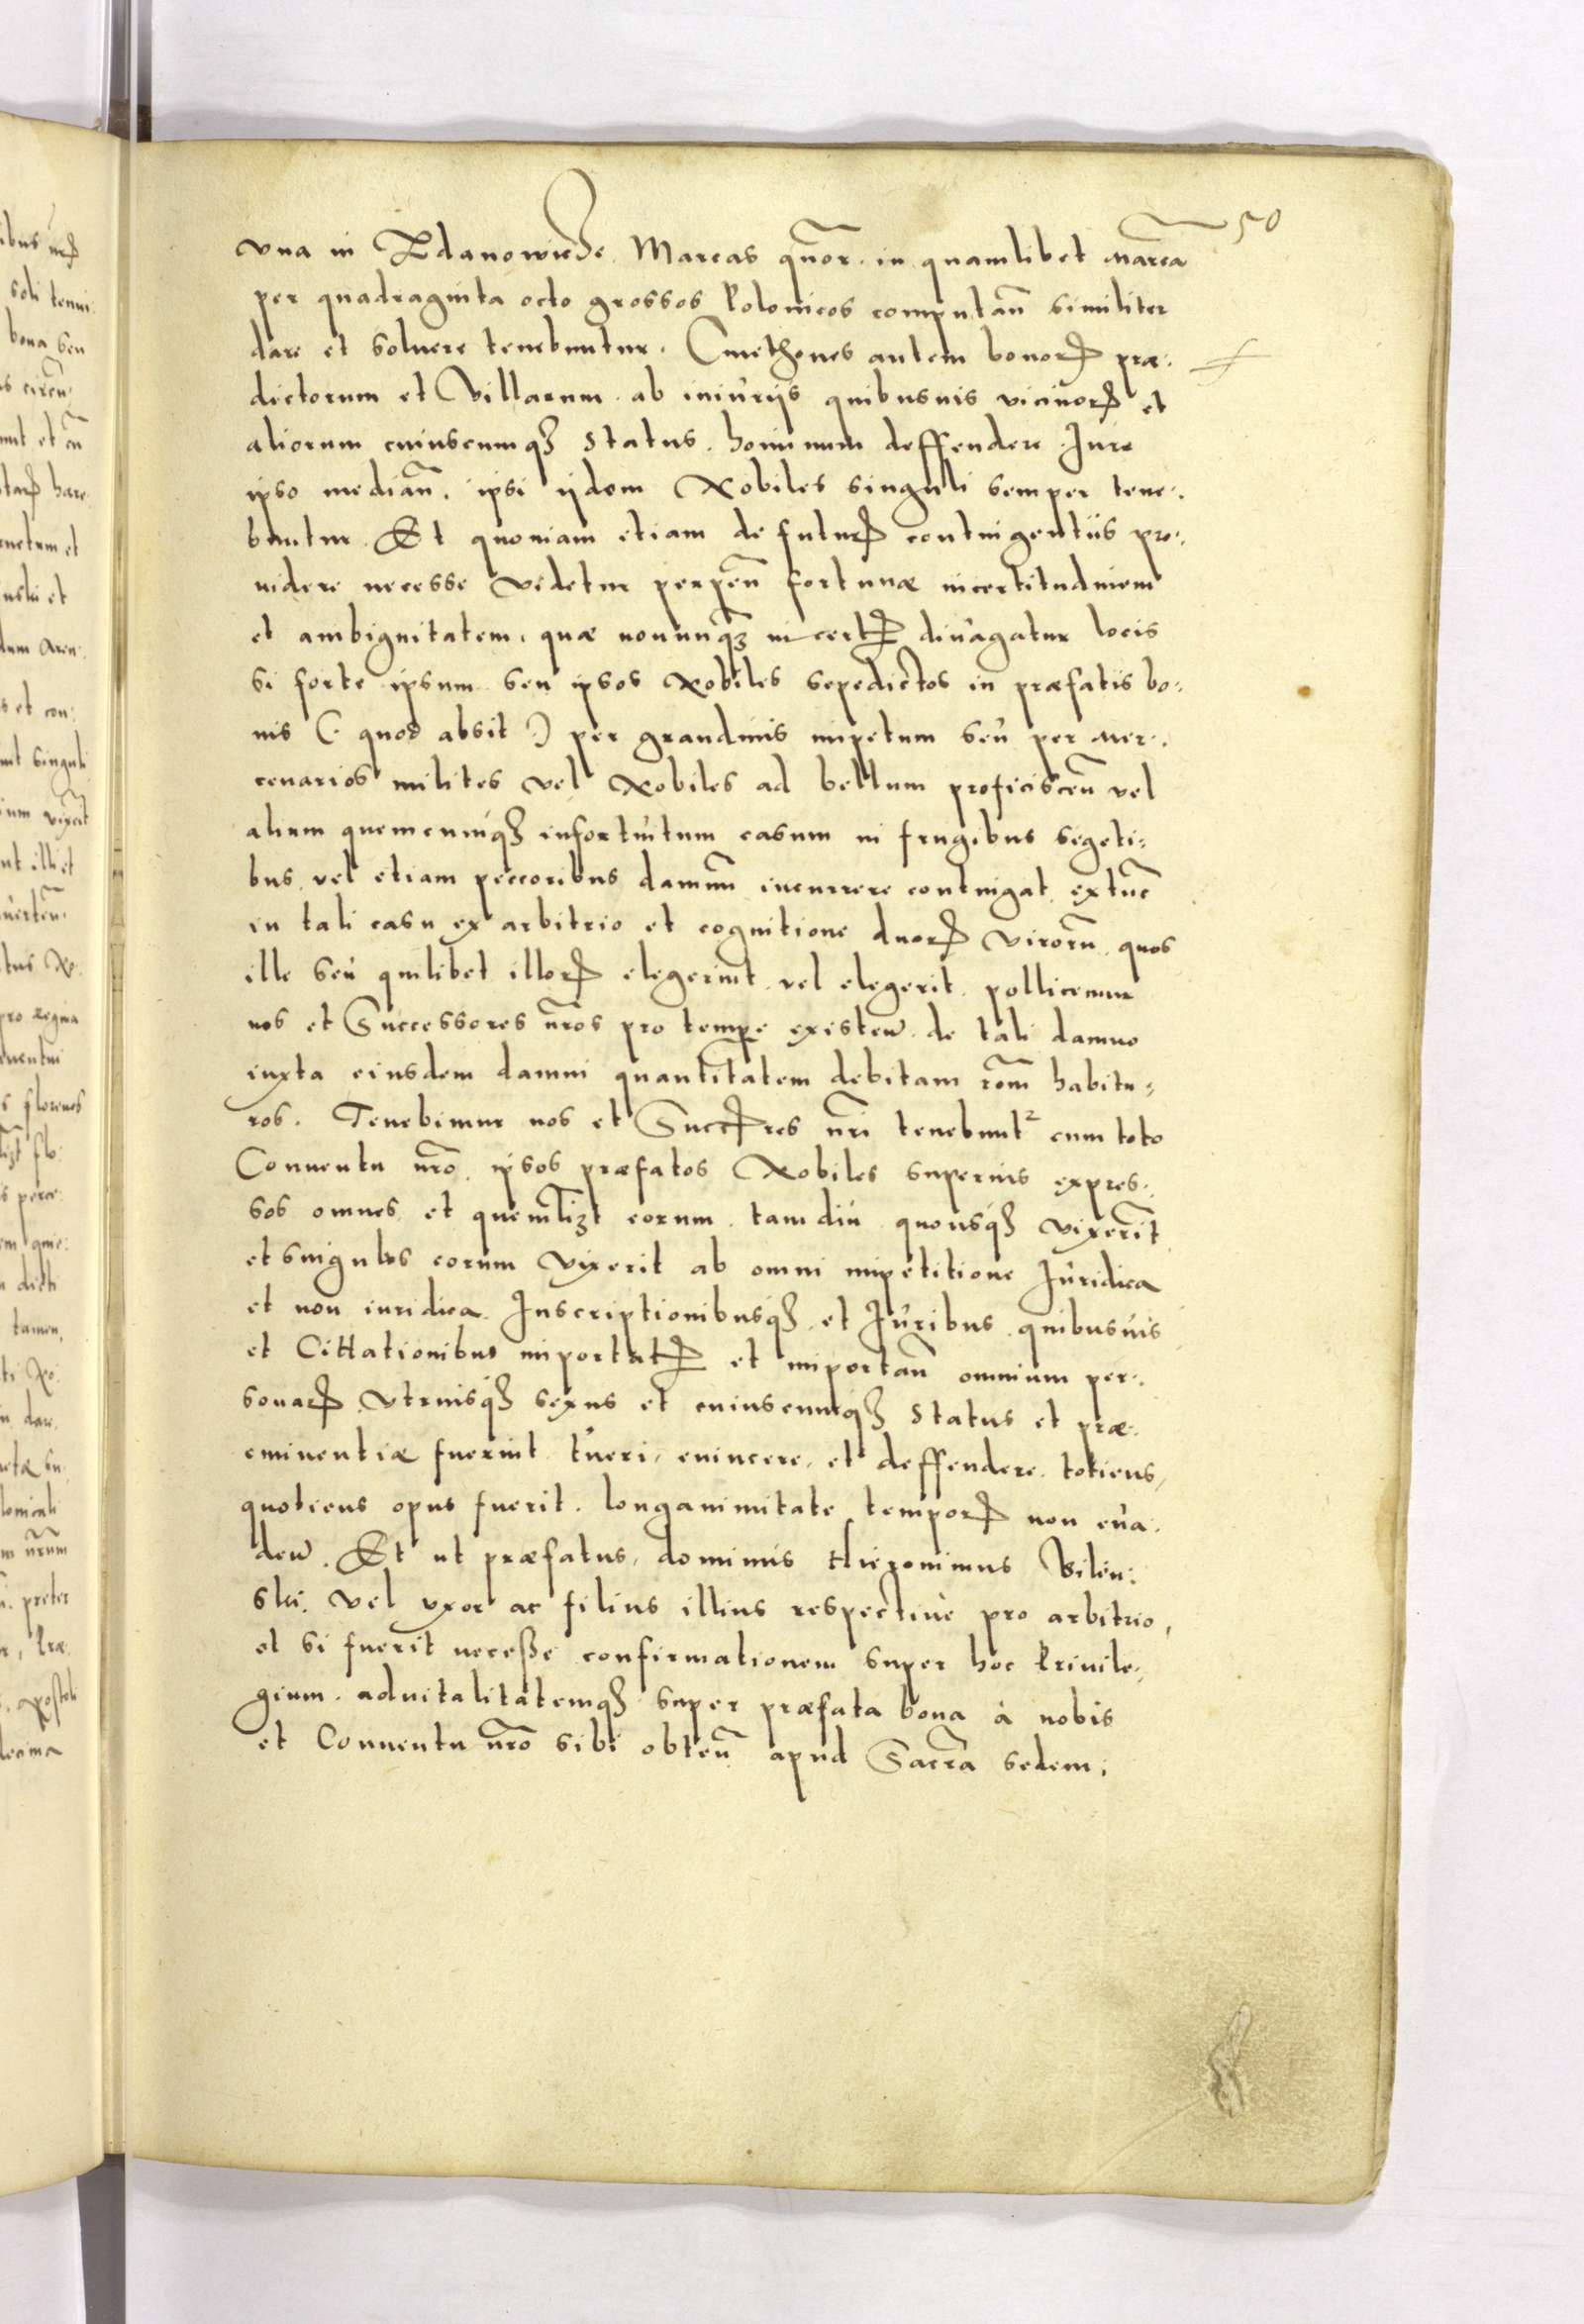 50
vna in Zdanowicze Marcas quōr. in quamlibet Marca
per quadraginta octo grossos Polonicos computañ similiter
dare et soluere tenebuntur. Cmethones autem bonorꝝ præ⸗
dictorum et Villarum ab iniurijs quibusuis vicinorꝝ et
aliorum cuiuscumqꝫ status hominum deffendere Jure
ipso mediañ. ipsi ijdem Nobiles singuli semper tene⸗
buntur. Et quoniam etiam de futurꝝ contingentiis pro⸗
uidere necesse videtur perpeñ fortunæ incertitudinem
et ambiguitatem, quæ nonnunqꝫ incertꝝ diuagatur locis
si forte ipsum seu ipsos Nobiles sepedictos in præfatis bo⸗
nis (: quod absit :) per grandinis impetum seu per Mer⸗
cenarios milites vel Nobiles ad bellum proficisceñ vel
alium quemcumqꝫ infortuitum casum in frugibus segeti⸗
bus vel etiam peccoribus damnū incurrere contingat extūc
in tali casu ex arbitrio et cognitione duorꝝ virorū quos
ille seu quilibet illorꝝ elegerint vel elegerit pollicemur
nos et Successores n̄ros pro tempe existeñ de tali damno
iuxta eiusdem damni quantitatem debitam rōm habitu⸗
ros. Tenebimur nos et Succꝝres n̄ri tenebunt² cum toto
Conuentu n̄ro ipsos præfatos Nobiles superius expres⸗
sos omnes et quemlꝫt eorum tamdiu quousqꝫ vixerīt
et singulos eorum vixerit ab omni impetitione Juridica
et non iuridica Inscriptionibusqꝫ et Juribus quibusuis
et Cittationibus importatꝝ et importañ omnium per⸗
sonarꝝ vtriusqꝫ sexus et cuiuscumqꝫ status et præ⸗
eminentiæ fuerint tueri, euincere, et deffendere totiens,
quotiens opus fuerit. longanimitate temporꝝ non eua⸗
deñ. Et ut præfatus dominus Hieronimus Bilin⸗
ski vel vxor ac filius illius respectiuè pro arbitrio,
et si fuerit neceße confirmationem super hoc Priuile⸗
gium aduitalitatemqꝫ super præfata bona à nobis
et Conuentu n̄ro sibi obteñ apud Sacrā sedem⸗